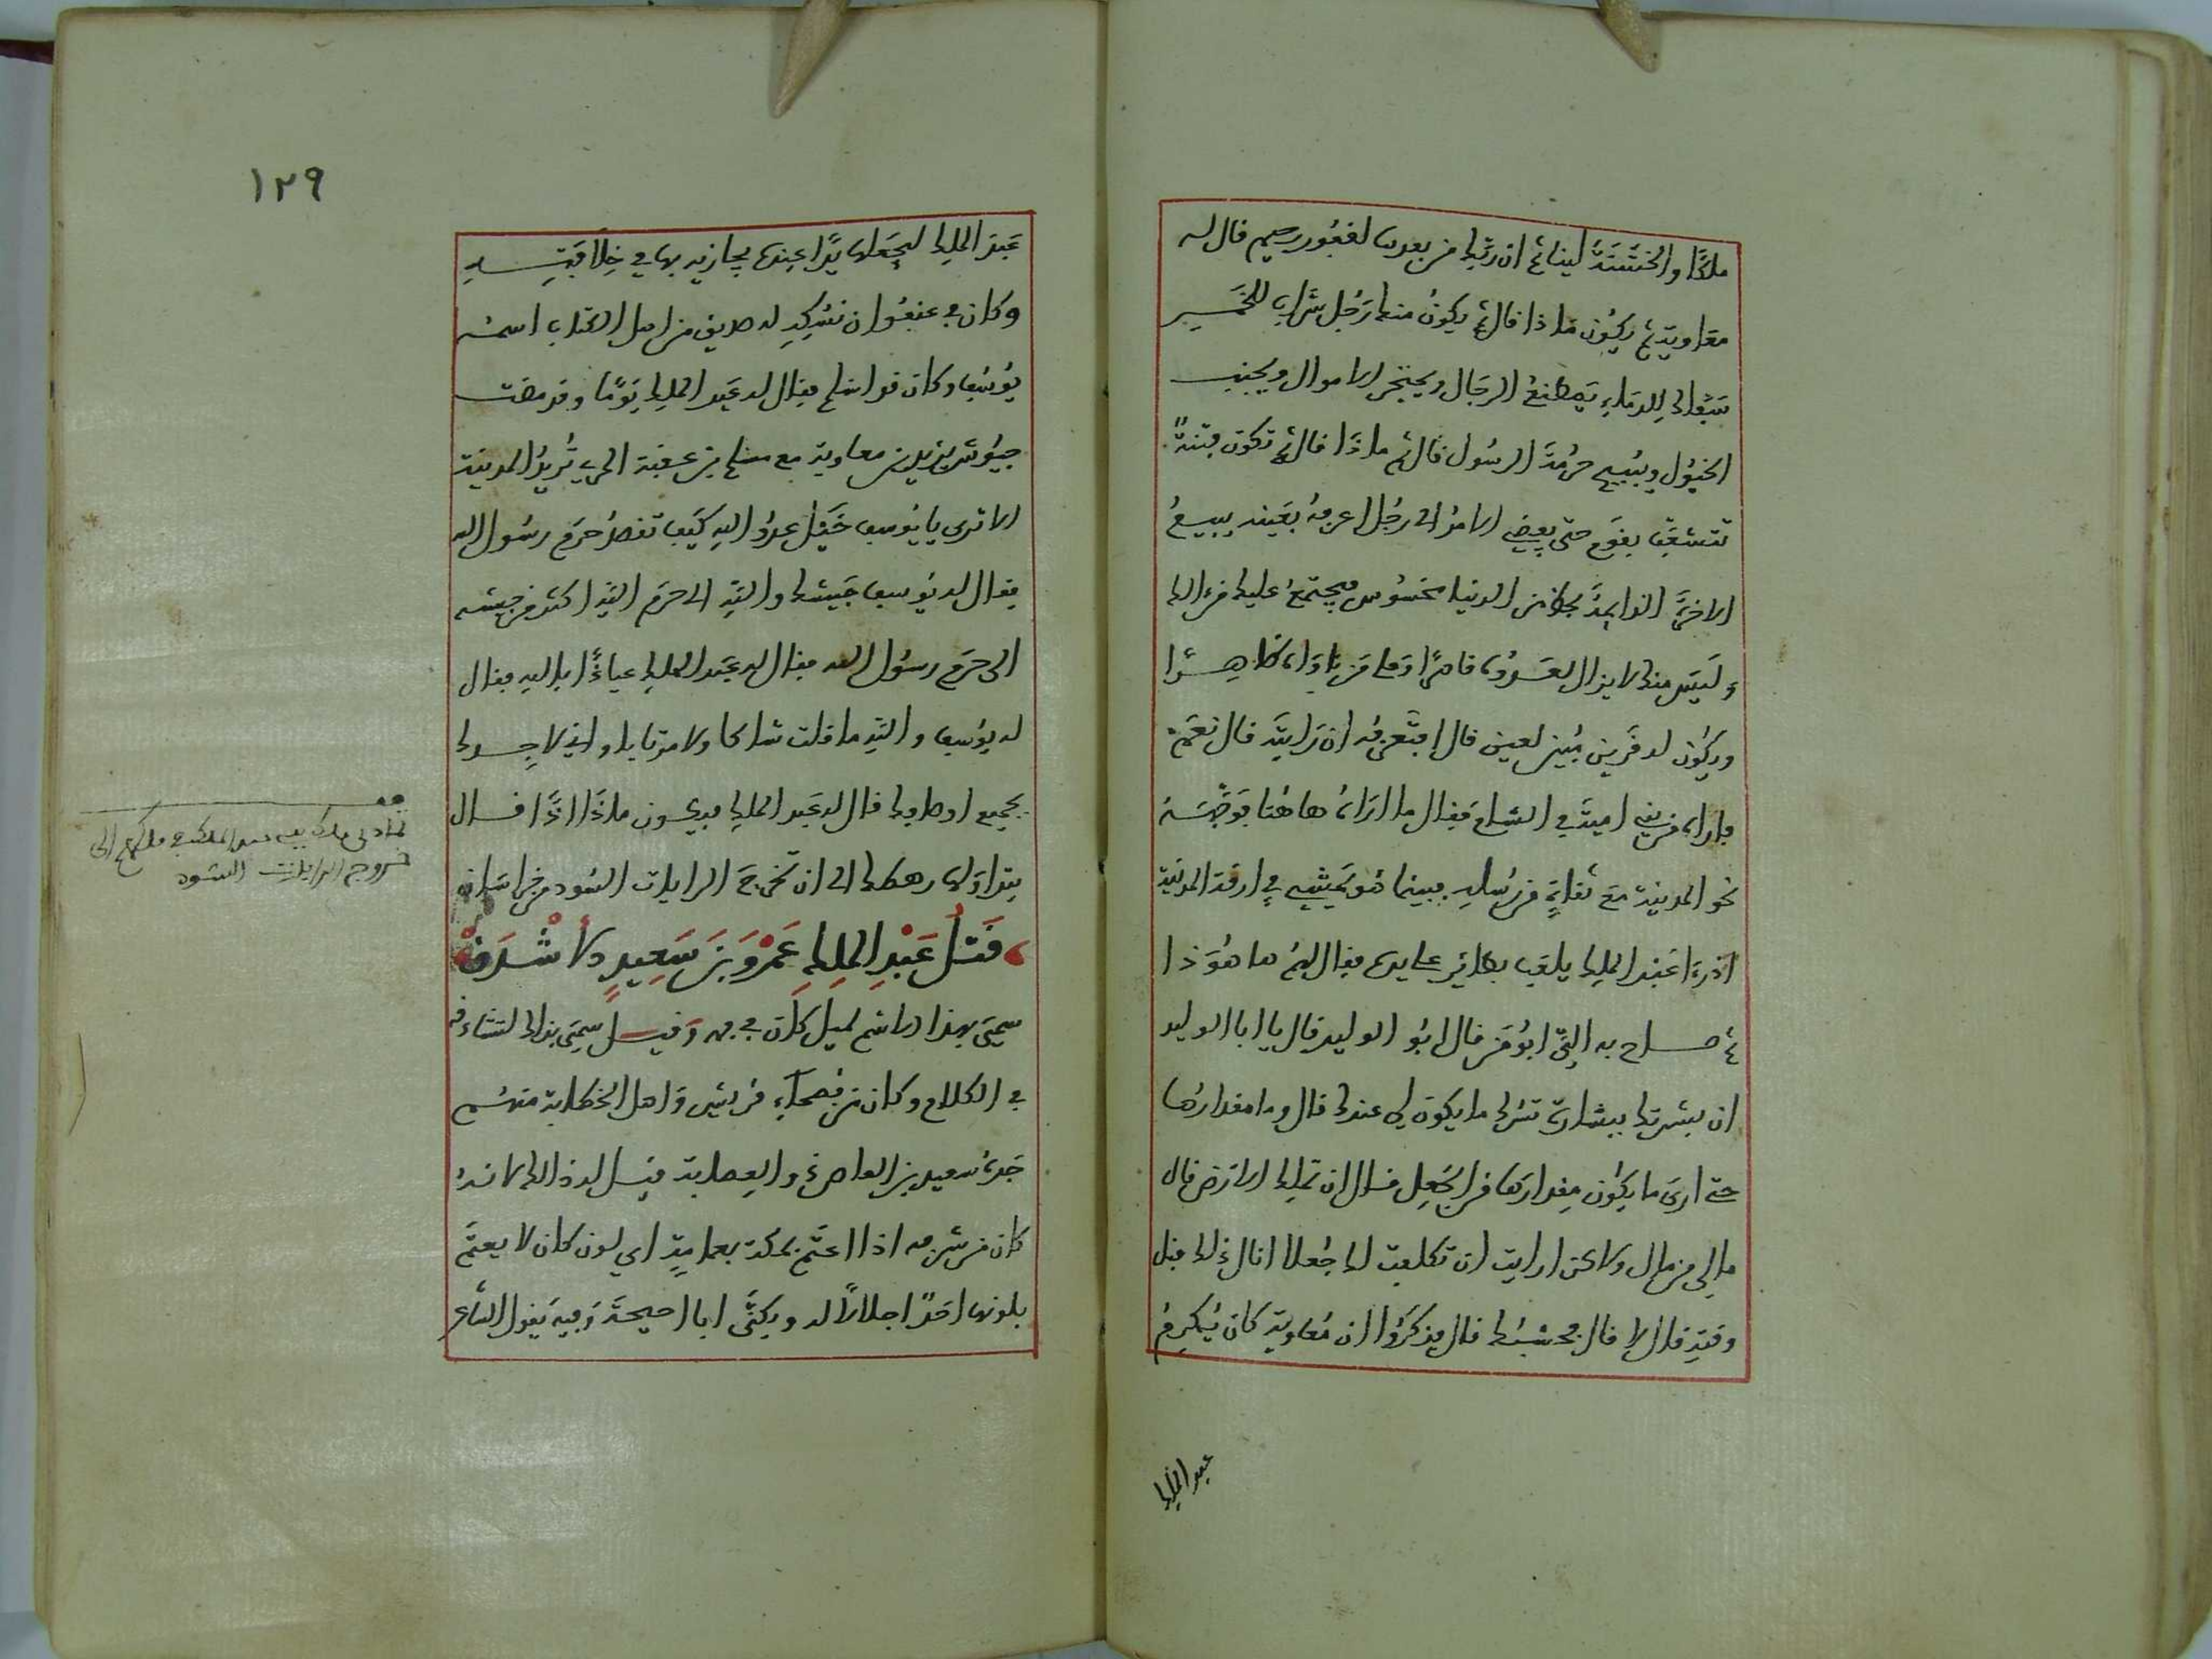 ملكًا والخشنة لينا ثم ان ربك من بعدها لغفور رحيم قال له
معاوية ثم يكون ماذا قال ثم يكون منكم رجل شراب للخمر
سفاك للدماء يصطنع الرجال ويحتجن الاموال ويجنب
الخيول ويبيح حرمة الرسول قال ثم ماذا قال ثم تكون فتنة
تتشعب بقوم حتى يفضي الامر الى رجل اعرفه بعينه يبيع
الاخرة الدائمة بحظ من الدنيا مخسوس فيجتمع عليه من الك
وليس منك لا يزال لعدوه قاهرا وعلى من ناواه ظاهرا
ويكون له قرين مبين لعين قال افتعرفه ان رايته قال نعم
فاراه من بني امية في الشام فقال ما اراه هاهنا فوجهه
نحو المدينة مع ثقات من رسله فبينما هو يمشي في ازقة المدينة
اذ راى عبد الملك يلعب بطائر على يده فقال لهم ها هو ذا
ثم صاح به الي ابو من قال ابو الوليد قال يا ابا الوليد
ان بشرتك ببشارة تسرك ما يكون لي عندك قال وما مقدارها
حتى ارى ما يكون مقدارها من الجعل قال ان تملك الارض قال
ما لي من مال ولاكن ارايت ان تكلفت لك جعلا انال ذلك قبل
وقته قال لا قال فحسبك قال فذكروا ان معاوية كان يكرم
عبد الملك
١٢٩
عبد الملك ليجعلها يدا عنده يجازيه بها في خلافته
وكان في عنفوان نسكه له صديق من اهل الكتاب اسمه
يوسف وكان قد اسلم فقال له عبد الملك يوما وقد مضت
جيوش يزيد بن معاوية مع مسلم بن عقبة المري يريد المدينة
الا ترى يا يوسف خيل عدو الله كيف تقصد حرم رسول الله
فقال له يوسف جيشك والله الى حرم الله اكثر من جيشه
الى حرم رسول الله فقال له عبد الملك عياذا بالله فقال
له يوسف والله ما قلت شاكا ولا مرتابا واني لاجدك
بجميع اوصافك قال له عبد الملك فيكون ماذا اذا قال
يتداولها رهطك الى ان تخرج الرايات السود من خراسان
قتل عبد الملك عمرو بن سعيد الاشدق
سمي بهذا الاسم لميل كان في فمه وقيل سمي بذلك لتشادقه
في الكلام وكان من فصحاء قريش واهل الخطابة منهم
جده سعيد بن العاص ذو العصابة قيل له ذلك لانه
كان من شرفه اذا اعتم بمكة بعمامة اي لون كان لا يعتم
بلونها احد اجلالا له ويكنى ابا احيحة وفيه يقول الشاعر
خروج الرايات السود